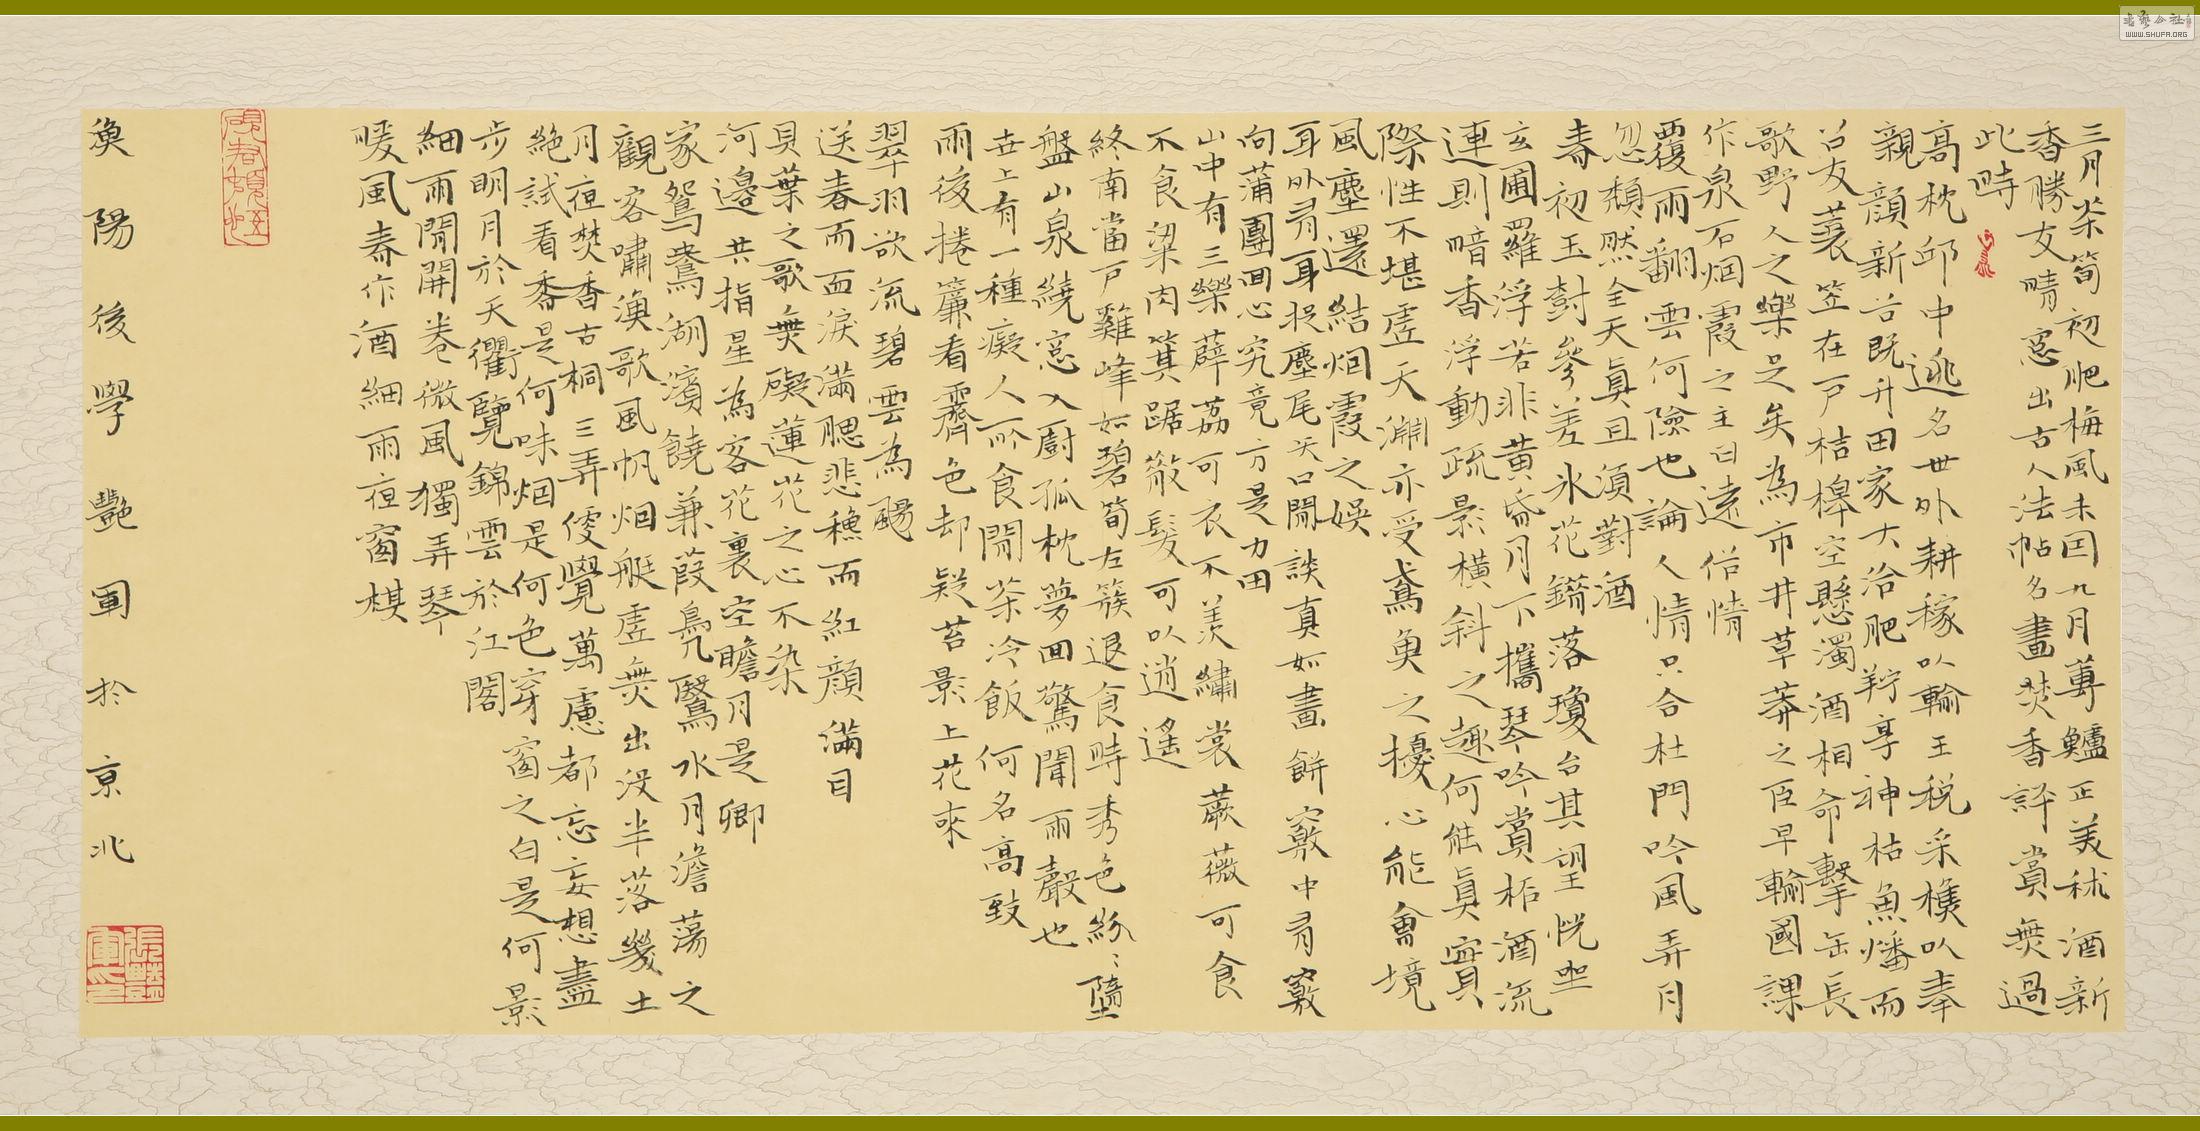 三月茶筍初肥梅風未困九月蓴鱸正美秫酒新
香勝友晴窓出古人法帖名畫焚香評賞無過
此時
高枕邱中逃名世外耕稼以輸王税采樵以奉
親顔新谷既升田家大洽肥羜享神枯魚燔而
召友蓑笠在戶桔槔空懸濁酒相命擊缶長
歌野人之樂足矣為市井草莽之臣早輸國課
作泉石烟霞之主日遠俗情
覆雨翻雲何險也論人情只合杜門吟風弄月
忽頹然全天真且須對酒
春初玉樹參差冰花錯落瓊台其望恍坐
玄圃羅浮若非黄昏月下攜琴吟賞柘酒流
連則暗香浮動疏影橫斜之趣何能真實
際性不堪虛天淵亦受鳶魚之擾心能會境
風塵還結烟霞之娛
耳外有耳捉塵尾矢口閒談真如畫餅竅中有竅
向蒲團回心究竟方是力田
山中有三樂薜荔可衣不羨繡裳蕨薇可食
不食粱肉箕踞散髮可以逍遙
終南當戶雞峰如碧筍左簇退食時秀色紛紛墮
盤山泉繞窓入廚孤枕夢回驚聞雨聲也
世上有一種癡人所食閒茶冷飯何名高致
雨後捲簾看霽色却疑苔影上花來
翠羽欲流碧雲為颺
送春而面淚滿腮悲穗而紅顔滿目
貝葉之歌無礙蓮花之心不染
河邊共指星為客花裏空瞻月是卿
家鴛鴦湖濱饒蒹葭鳧鷖水月澹蕩之
觀客嘯漁歌風帆烟艇虛無出没半落幾士
月夜焚香古桐三弄便覺萬慮都忘妄想盡
絶試看香是何味烟是何色穿窗之白是何影
步明月於天衢覽錦雲於江閣
細雨閒開卷微風獨弄琴
暖風春作酒細雨夜窗棋
渙陽後學艷軍於京北